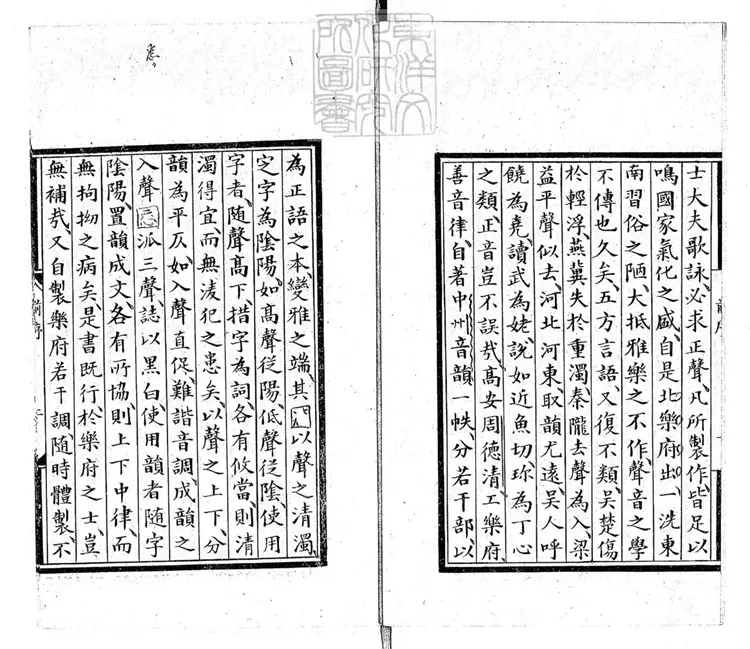 士大夫歌詠、必求正聲、凡所製作皆足以
鳴國家氣化之盛、自是北樂府出、一洗東
南習俗之陋、大抵雅樂之不作、聲音之學
不傳也久矣、五方言語、又復不類、吳楚傷
於輕浮、燕冀失於重濁、秦隴去聲為入、梁
益平聲似去、河北河東取韻尤遠、吳人呼
饒為堯、讀武為姥、說如近魚、切珍為丁心
之類、正音豈不誤㢤、高安周德清、工樂府、
善音律、自著中州音韻一帙、分若干部、以
為正語之本、變雅之端、其以聲之清濁、
定字為陰陽、如髙聲從陽、低聲從陰、使用
字者、隨聲髙下、措字為詞、各有攸當、則清
濁得宜、而無凌犯之患矣、以聲之上下、分
韻為平仄、如入聲直促、難諧音調、成韻之
入聲派三聲、誌以黑白、使用韻者、隨字
陰陽、置韻成文、各有所協、則上下中律、而
無拘拗之病矣、是書既行、於樂府之士、豈
無補㢤、又自製樂府若干調、隨時體製、不
東洋文化研究所圖書